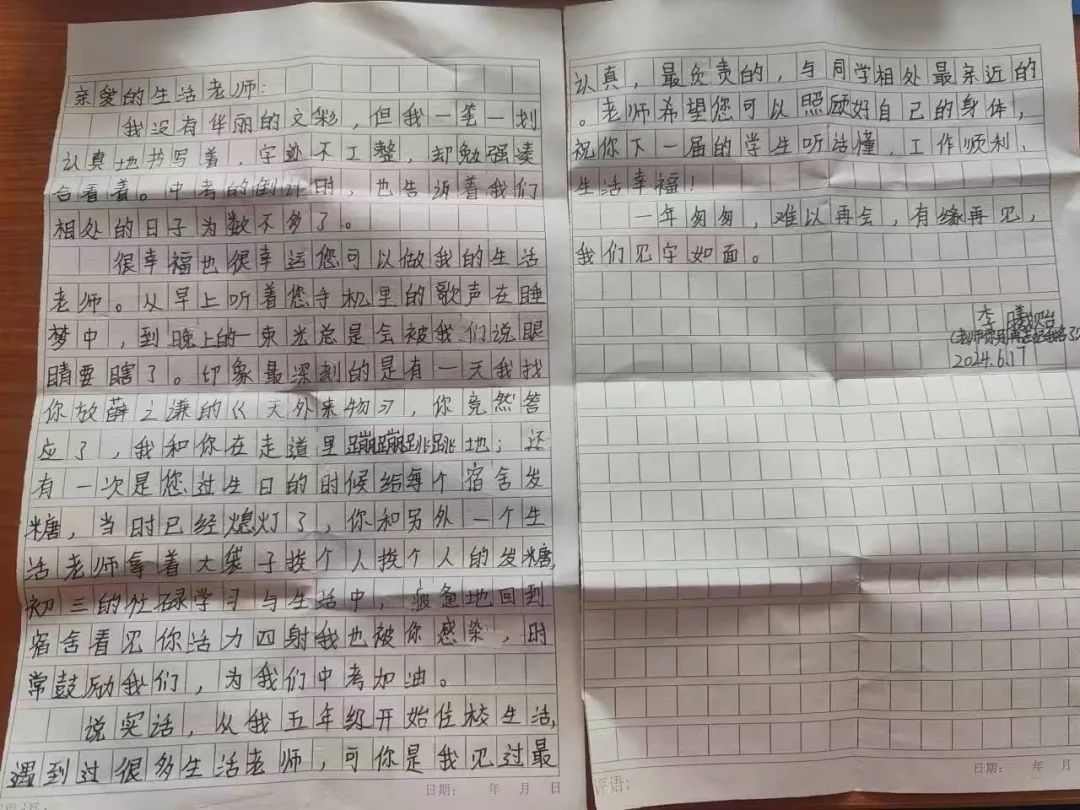 亲爱的生活老师：
我没有华丽的文彩，但我一笔一划
认真地书写着，字迹不工整，却勉强凑
合看着。中考的倒计时，也告诉着我们
相处的日子为数不多了。
很幸福也很幸运您可以做我的生活
老师。从早上听着您手机里的歌声在睡
梦中，到晚上的一束光总是会被我们说眼
睛要瞎了。印象最深刻的是有一天我找
你放薛之谦的《天外来物》，你竟然答
应了，我和你在走道里蹦蹦跳跳地；还
有一次是您过生日的时候给每个宿舍发
糖，当时已经熄灯了，你和另外一个生
活老师拿着大袋子挨个人挨个人的发糖，
初三的忙碌学习与生活中，疲惫地回到
宿舍看见你活力四射我也被你感染，时
常鼓励我们，为我们中考加油。
说实话，从我五年级开始住校生活，
遇到过很多生活老师，可你是我见过最
日期： 年 月 日
认真，最负责的，与同学相处最亲近的
。老师希望您可以照顾好自己的身体，
祝你下一届的学生听话懂，工作顺利，
生活幸福！
一年匆匆，难以再会，有缘再见，
我们见字如面。
李
(老师你别再忘记我名了
2024.6.17
日期： 年 月
评语：